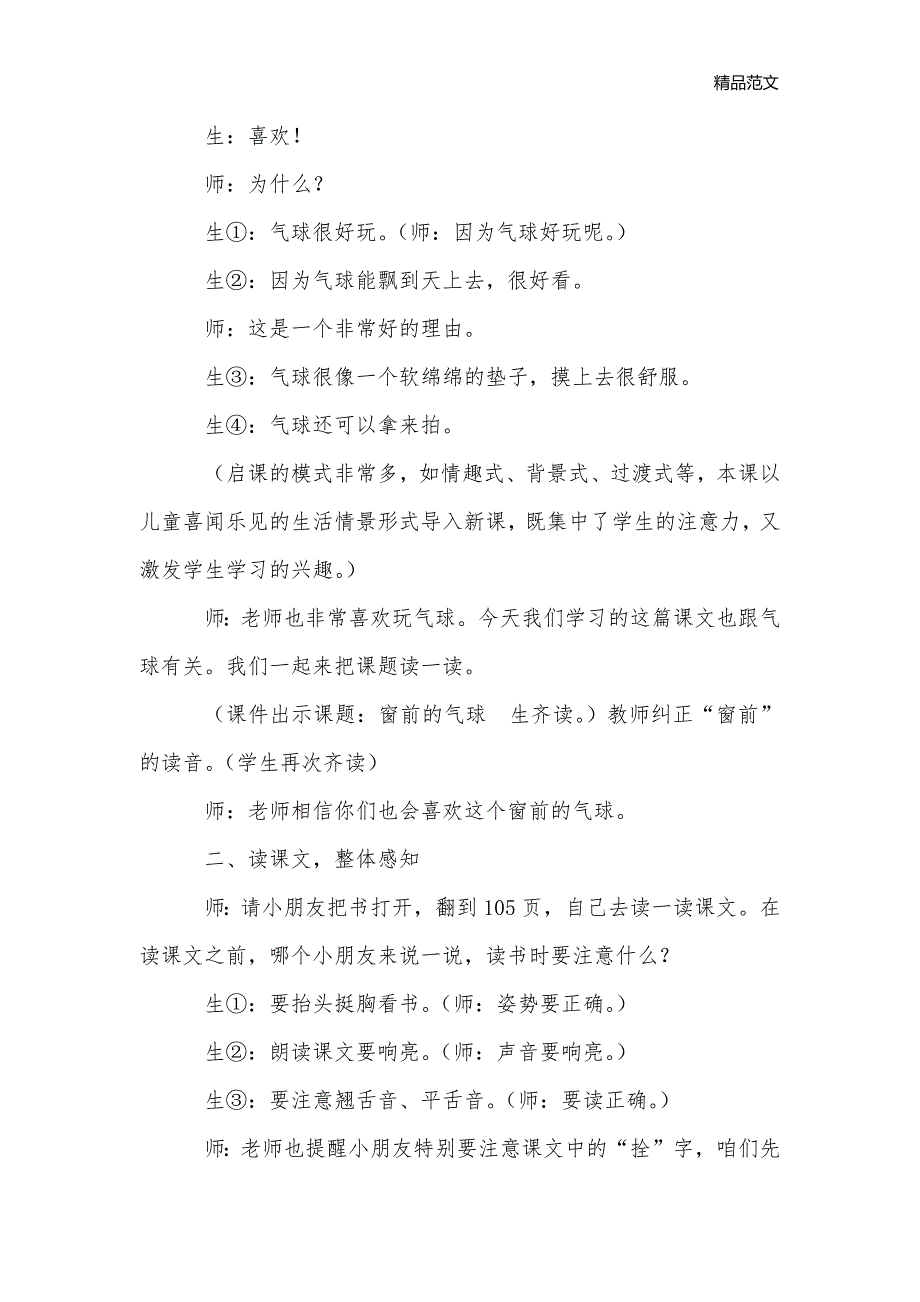 精品范文
生：喜欢！
师：为什么？
生①：气球很好玩。（师：因为气球好玩呢。）
生②：因为气球能飘到天上去，很好看。
师：这是一个非常好的理由。
生③：气球很像一个软绵绵的垫子，摸上去很舒服。
生④：气球还可以拿来拍。
（启课的模式非常多，如情趣式、背景式、过渡式等，本课以
儿童喜闻乐见的生活情景形式导入新课，既集中了学生的注意力，又
激发学生学习的兴趣。）
师：老师也非常喜欢玩气球。今天我们学习的这篇课文也跟气
球有关。我们一起来把课题读一读。
（课件出示课题：窗前的气球　生齐读。）教师纠正“窗前”
的读音。（学生再次齐读）
师：老师相信你们也会喜欢这个窗前的气球。
二、读课文，整体感知
师：请小朋友把书打开，翻到 105 页，自己去读一读课文。在
读课文之前，哪个小朋友来说一说，读书时要注意什么？
生①：要抬头挺胸看书。（师：姿势要正确。）
生②：朗读课文要响亮。（师：声音要响亮。）
生③：要注意翘舌音、平舌音。（师：要读正确。）
师：老师也提醒小朋友特别要注意课文中的“拴”字，咱们先